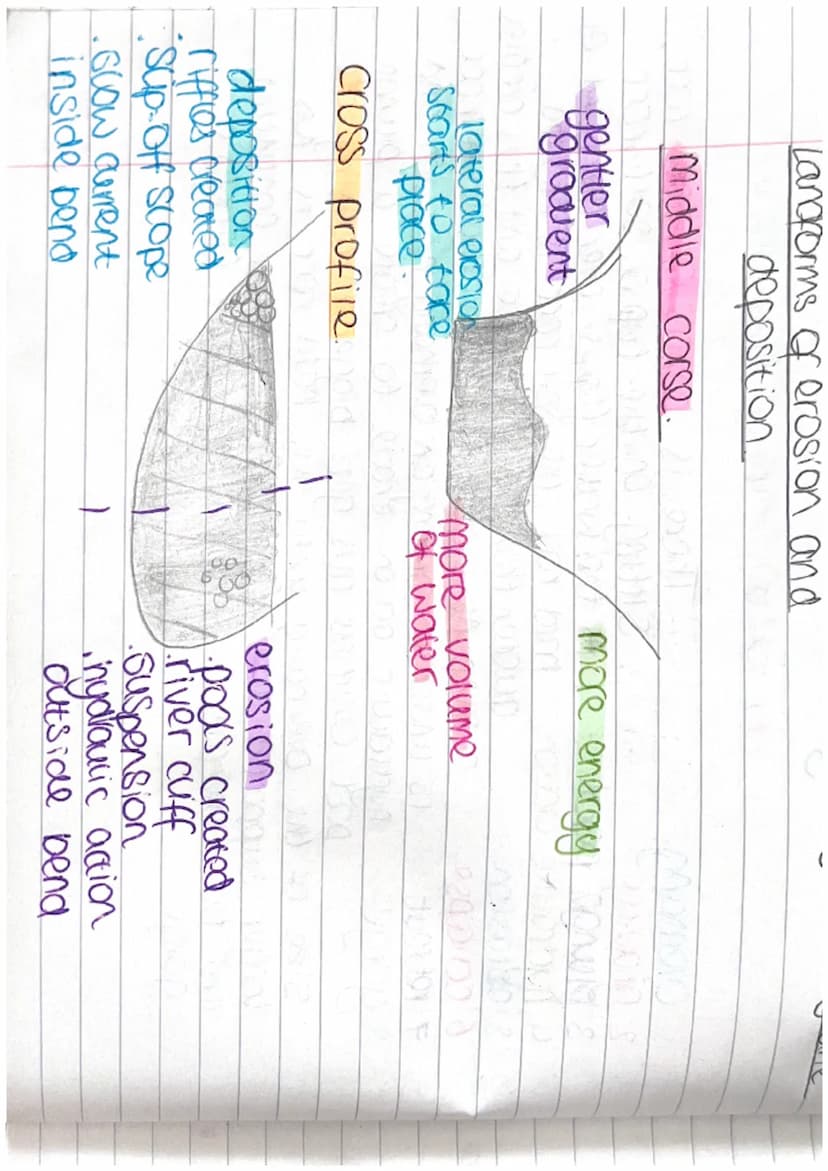 Landforms of erosion and
deposition
Middle corse.
gentler
gradient
more energy
lateral erosion
starts to take
place.
more volume
of water
cross profile.
deposition
. riffles created
. slip-off slope
. slow current
inside bend
erosion
. pools created
. river cliff
. suspension
. hydraulic action
outside bend